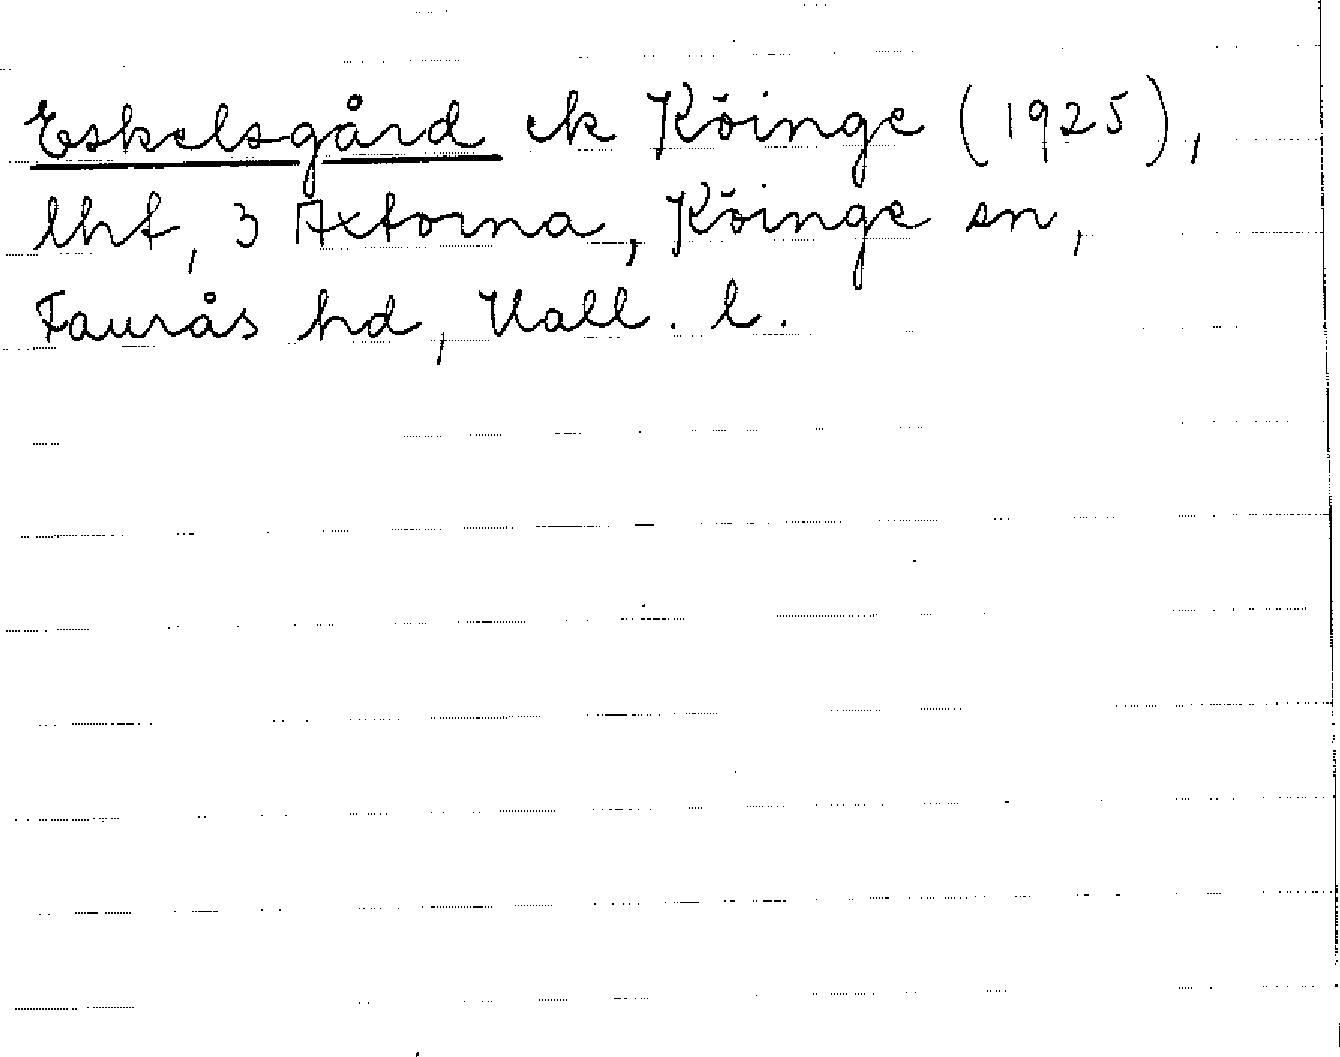 Eskelsgård ek Köinge (1925),
lht, 3 Axtorna, Köinge sn,
Faurås hd, Hall. l.